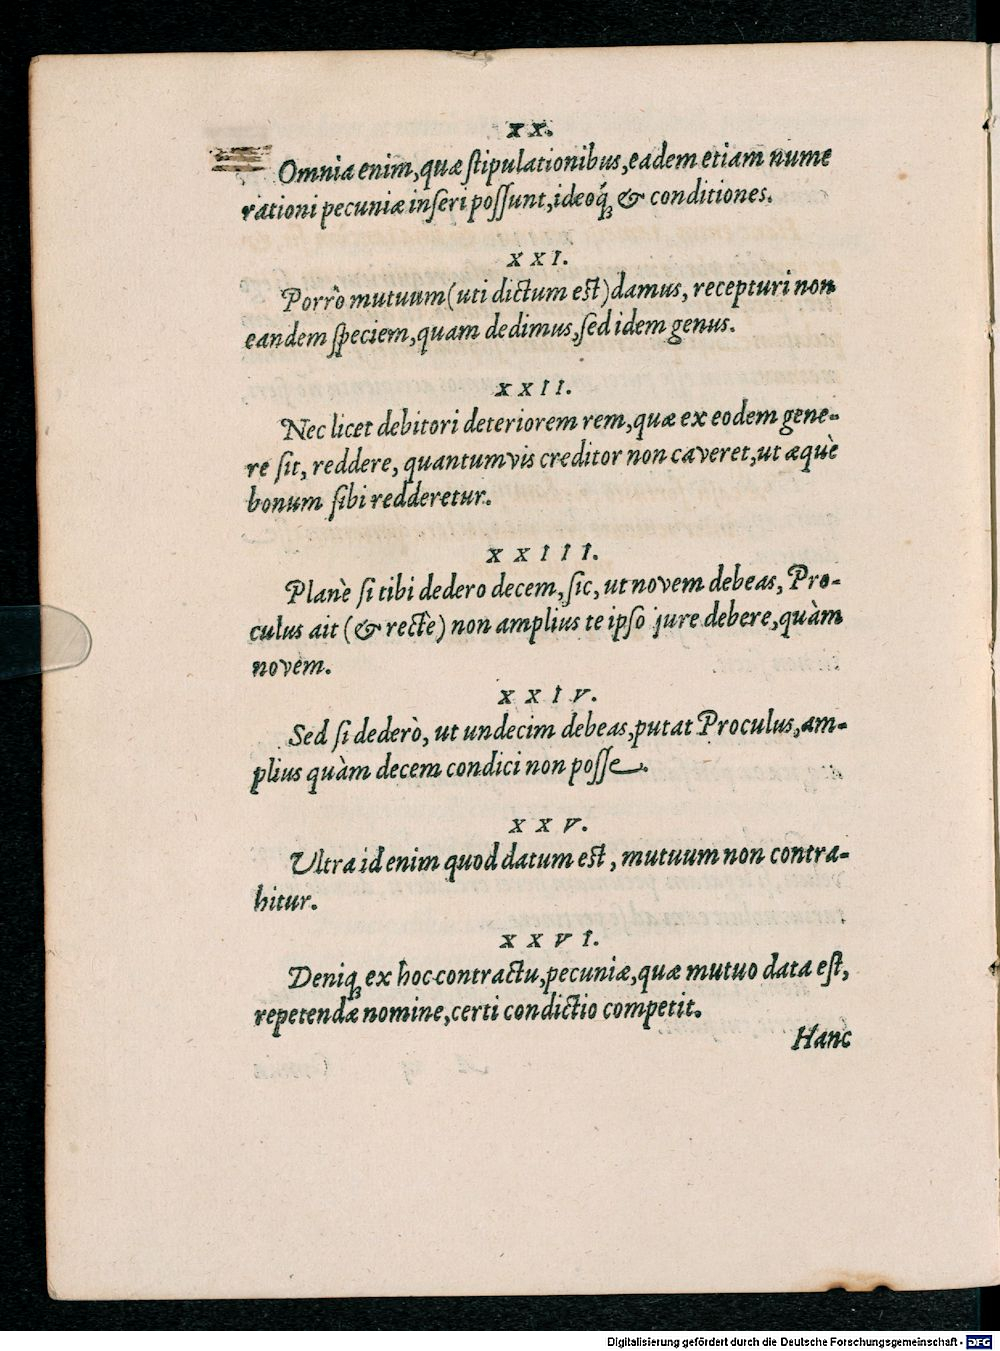 XX.
Omnia enim, quæ stipulationibus, eadem etiam nume
rationi pecuniæ inseri possunt, ideoq́; & conditiones.
XXI.
Porrò mutuum (uti dictum est) damus, recepturi non
eandem speciem, quam dedimus, sed idem genus.
XXII.
Nec licet debitori deteriorem rem, quæ ex eodem gene-
re sit, reddere, quantumvis creditor non caveret, ut æquè
bonum sibi redderetur.
XXIII.
Planè si tibi dedero decem, sic, ut novem debeas, Pro-
culus ait (& rectè) non amplius te ipso jure debere, quàm
novem.
XXIV.
Sed si dederò, ut undecim debeas, putat Proculus, am-
plius quàm decem condici non posse.
XXV.
Ultra id enim quod datum est, mutuum non contra-
hitur.
XXVI.
Deniq; ex hoc contractu, pecuniæ, quæ mutuo data est,
repetendæ nomine, certi condictio competit.
Hanc
Digitalisierung gefördert durch die Deutsche Forschungsgemeinschaft - DFG